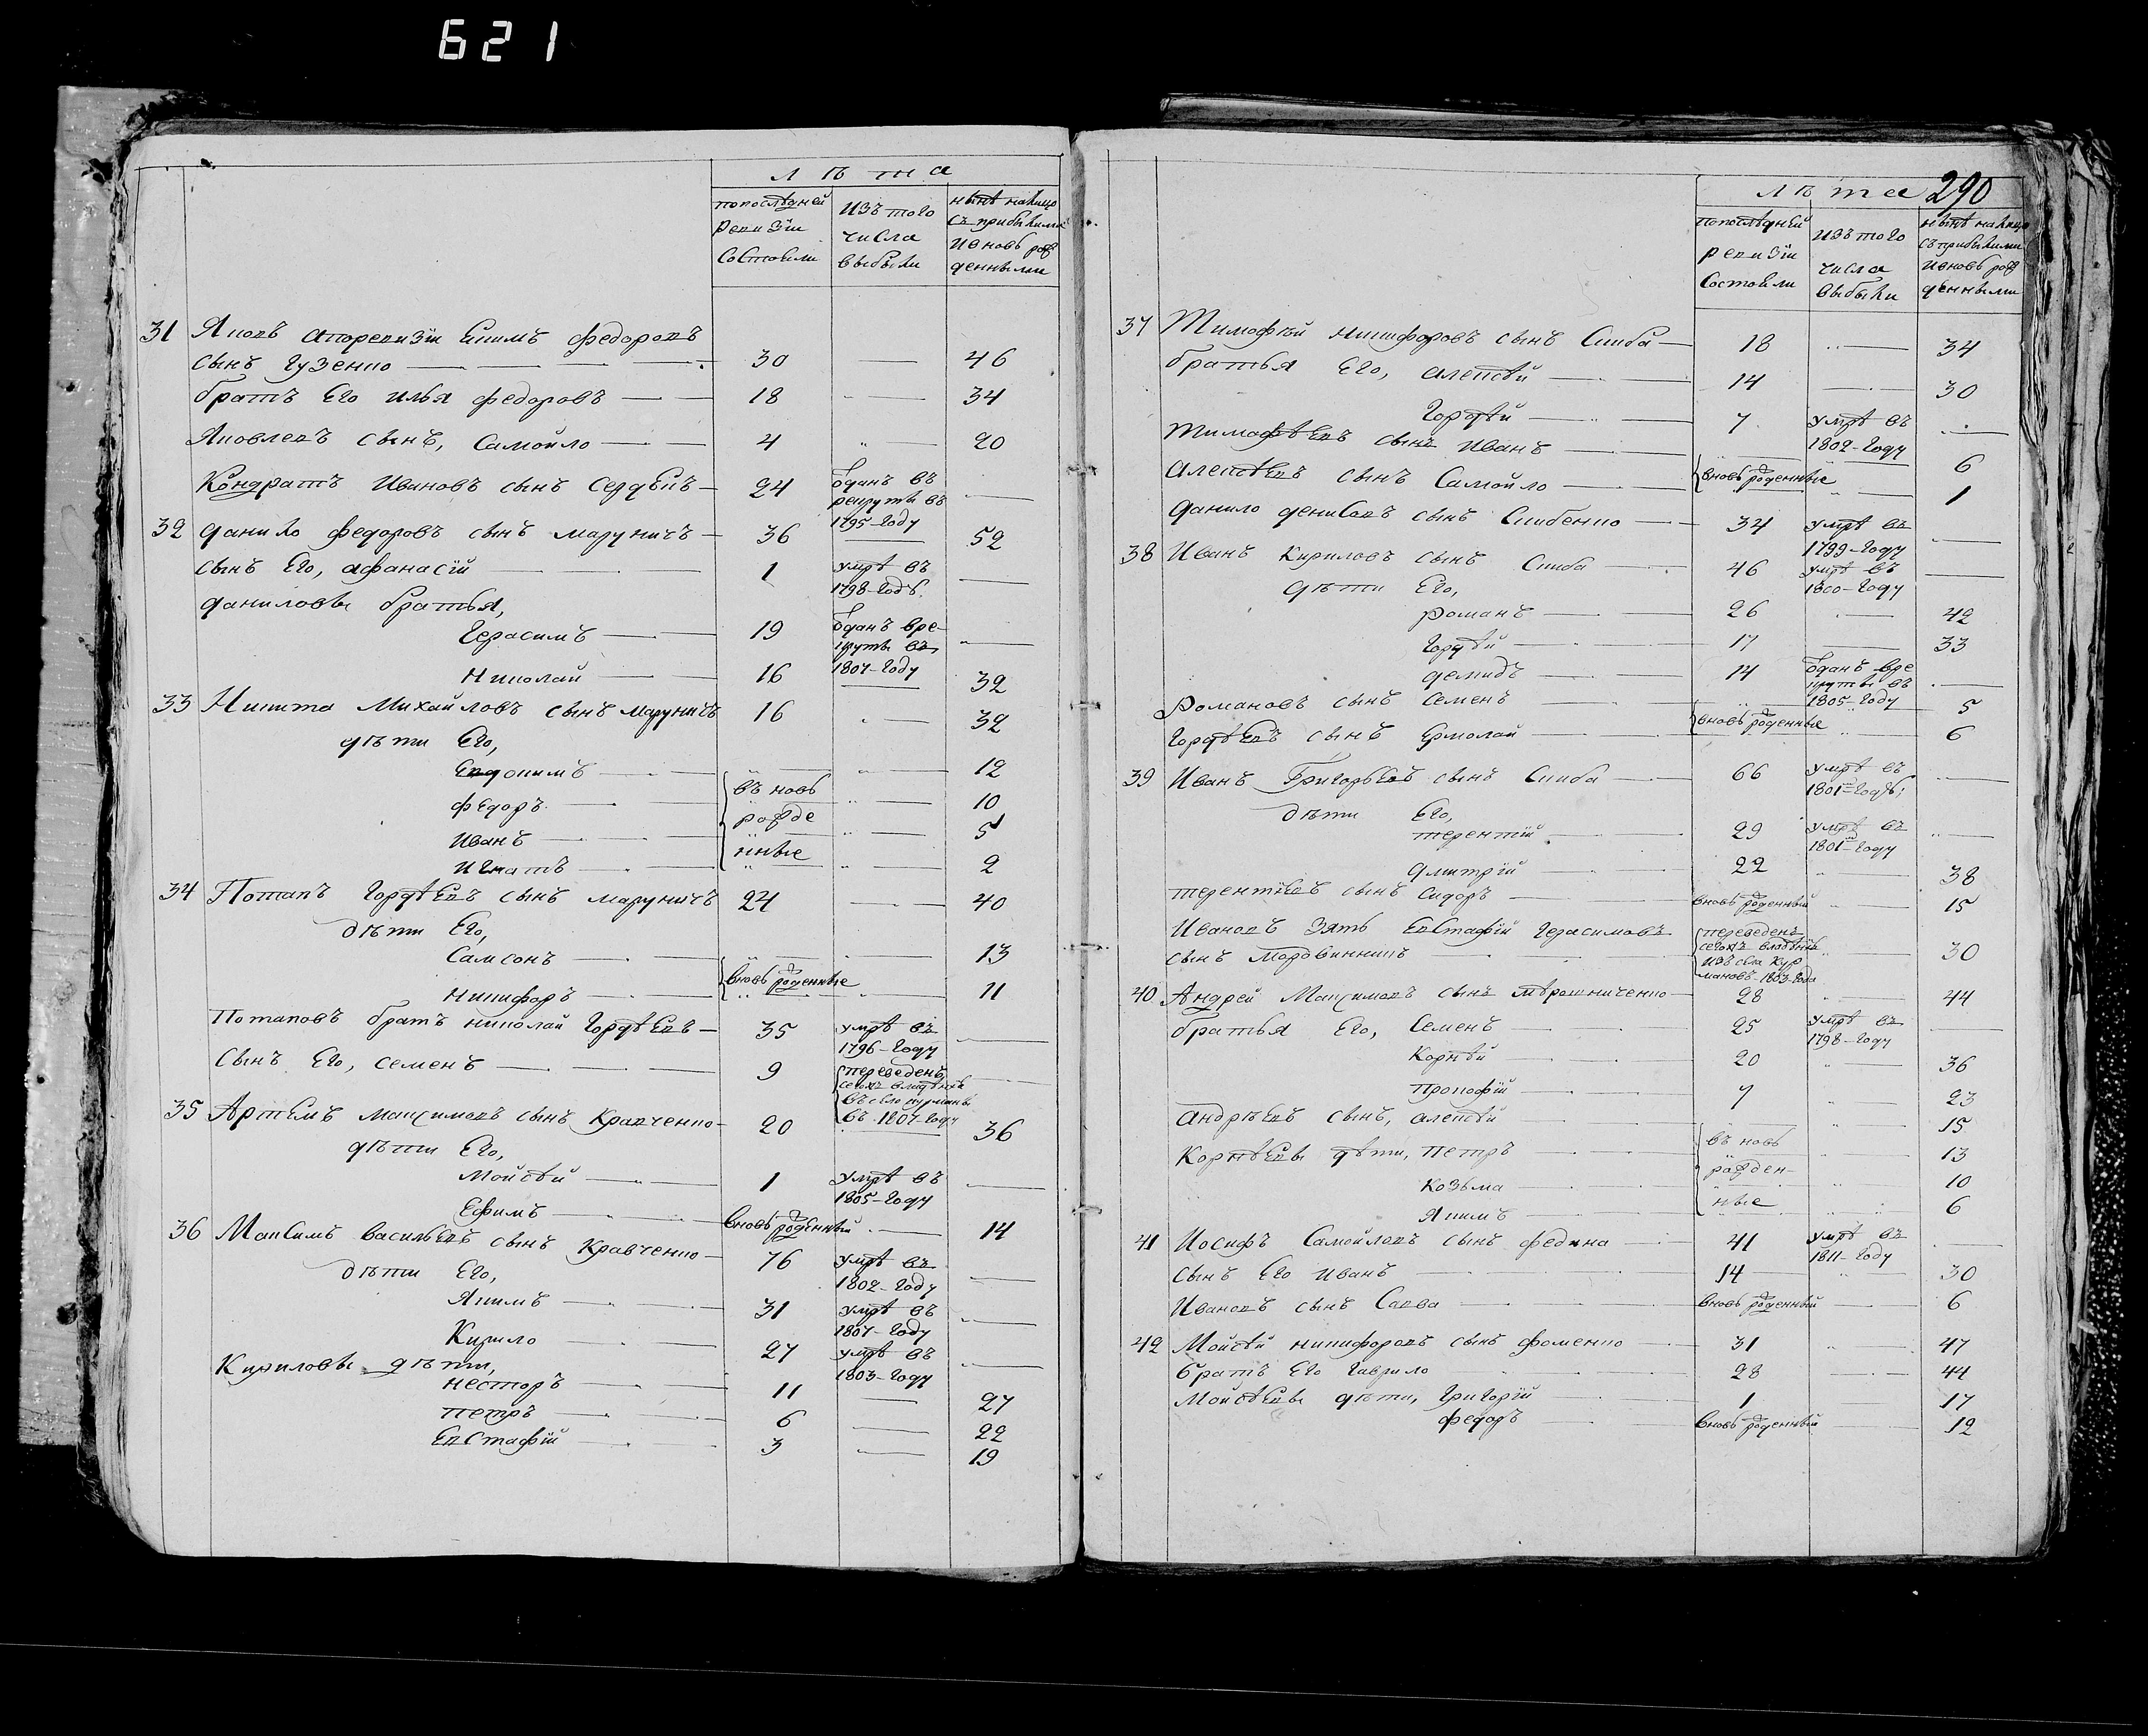 621
лѣта
попослѣдней ревизіи состояли
изъ того числа выбыли
нынѣ налицо съ прибылыми и вновь рожденными
31 Яковъ аповревизіи Екимъ федоровъ
сынъ гузенко 30 — 46
братъ Его илья федоровъ 18 — 34
Яковлевъ сынъ, Самойло 4 — 20
Кондратъ Ивановъ сынъ Сердюкъ 24 Оданъ въ рекруты въ 1795-году —
32 данило федоровъ сынъ маруничъ 36 — 52
сынъ Его, афанасій 1 умрѣ въ 1798-годѣ —
даниловы братья,
Герасимъ 19 Оданъ вре- круты въ 1807-году —
Николай 16 — 32
33 Никита Михайловъ сынъ маруничъ 16 — 32
дѣти Его,
Евдокимъ — 12
федоръ — 10
Иванъ — 5
Игнатъ — 2
въ новь рожде нные
34 Потапъ Гордѣевъ сынъ маруничъ 24 — 40
дѣти Его,
Самсонъ — 13
Никифоръ вновь рожденные — 11
Потаповъ братъ николай Гордѣевъ 35 умрѣ въ 1796-году —
Сынъ Его, семенъ 9 переведенъ въ село въ 1807-году —
35 Артемъ максимовъ сынъ Кравченко 20 — 36
дѣти Его,
Мойсѣй 1 умрѣ въ 1805-году —
Ефимъ вновь рожденный — 14
36 Максимъ васильевъ сынъ Кравченко 76 умрѣ въ 1802-году —
дѣти Его,
Якимъ 31 умрѣ въ 1807-году —
Кирило 27 умрѣ въ 1803-году —
Кириловы дѣти,
Несторъ 11 — 27
петръ 6 — 22
Евстафій 3 — 19
290
лѣта
попослѣдней ревизіи состояли
изъ того числа выбыли
нынѣ налицо съ прибылыми и вновь рожденными
37 Тимофѣй никифоровъ сынъ Скиба 18 — 34
братья Его, алексѣй 14 — 30
Гордѣй 7 умрѣ въ 1802-году —
Тимофѣевъ сынъ Иванъ — 6
алексѣевъ сынъ Самойло вновь рожденные — 1
данило денисовъ сынъ Скибенко 34 умрѣ въ 1799-году —
38 Иванъ Кириловъ сынъ Скиба 46 умрѣ въ 1800-году —
дѣти Его,
романъ 26 — 42
Гордѣй 17 — 33
демидъ 14 Оданъ вре круты въ 1805-году —
Романовъ сынъ семенъ — 5
Гордѣевъ сынъ Ермолай вновь рожденные — 6
39 Иванъ Григорьевъ сынъ Скиба 66 умрѣ въ 1801-годѣ —
дѣти Его,
терентій 29 умрѣ въ 1801-году —
дмитрій 22 — 38
терентіевъ сынъ сидоръ вновь рожденный — 15
Ивановъ зять Евстафій Герасимовъ
сынъ мордвинникъ переведенъ изъ села Кур- мановъ 1803-года — 30
40 Андрей Максимовъ сынъ мѣрошниченко 28 — 44
братья Его, Семенъ 25 умрѣ въ 1798-году —
Корнѣй 20 — 36
прокофій 7 — 23
андрѣевъ сынъ, алексѣй — 15
Корнѣевы дѣти, петръ — 13
Козьма — 10
Якимъ — 6
въ новь рожден- ные
41 Иосифъ Самойловъ сынъ федина 41 умрѣ въ 1811-году —
сынъ Его иванъ 14 — 30
Ивановъ сынъ Савва вновь рожденный — 6
42 Мойсѣй никифоровъ сынъ фоменко 31 — 47
братъ Его гаврило 28 — 44
Мойсѣевы дѣти, Григорій 1 — 17
федоръ вновь рожденный — 12